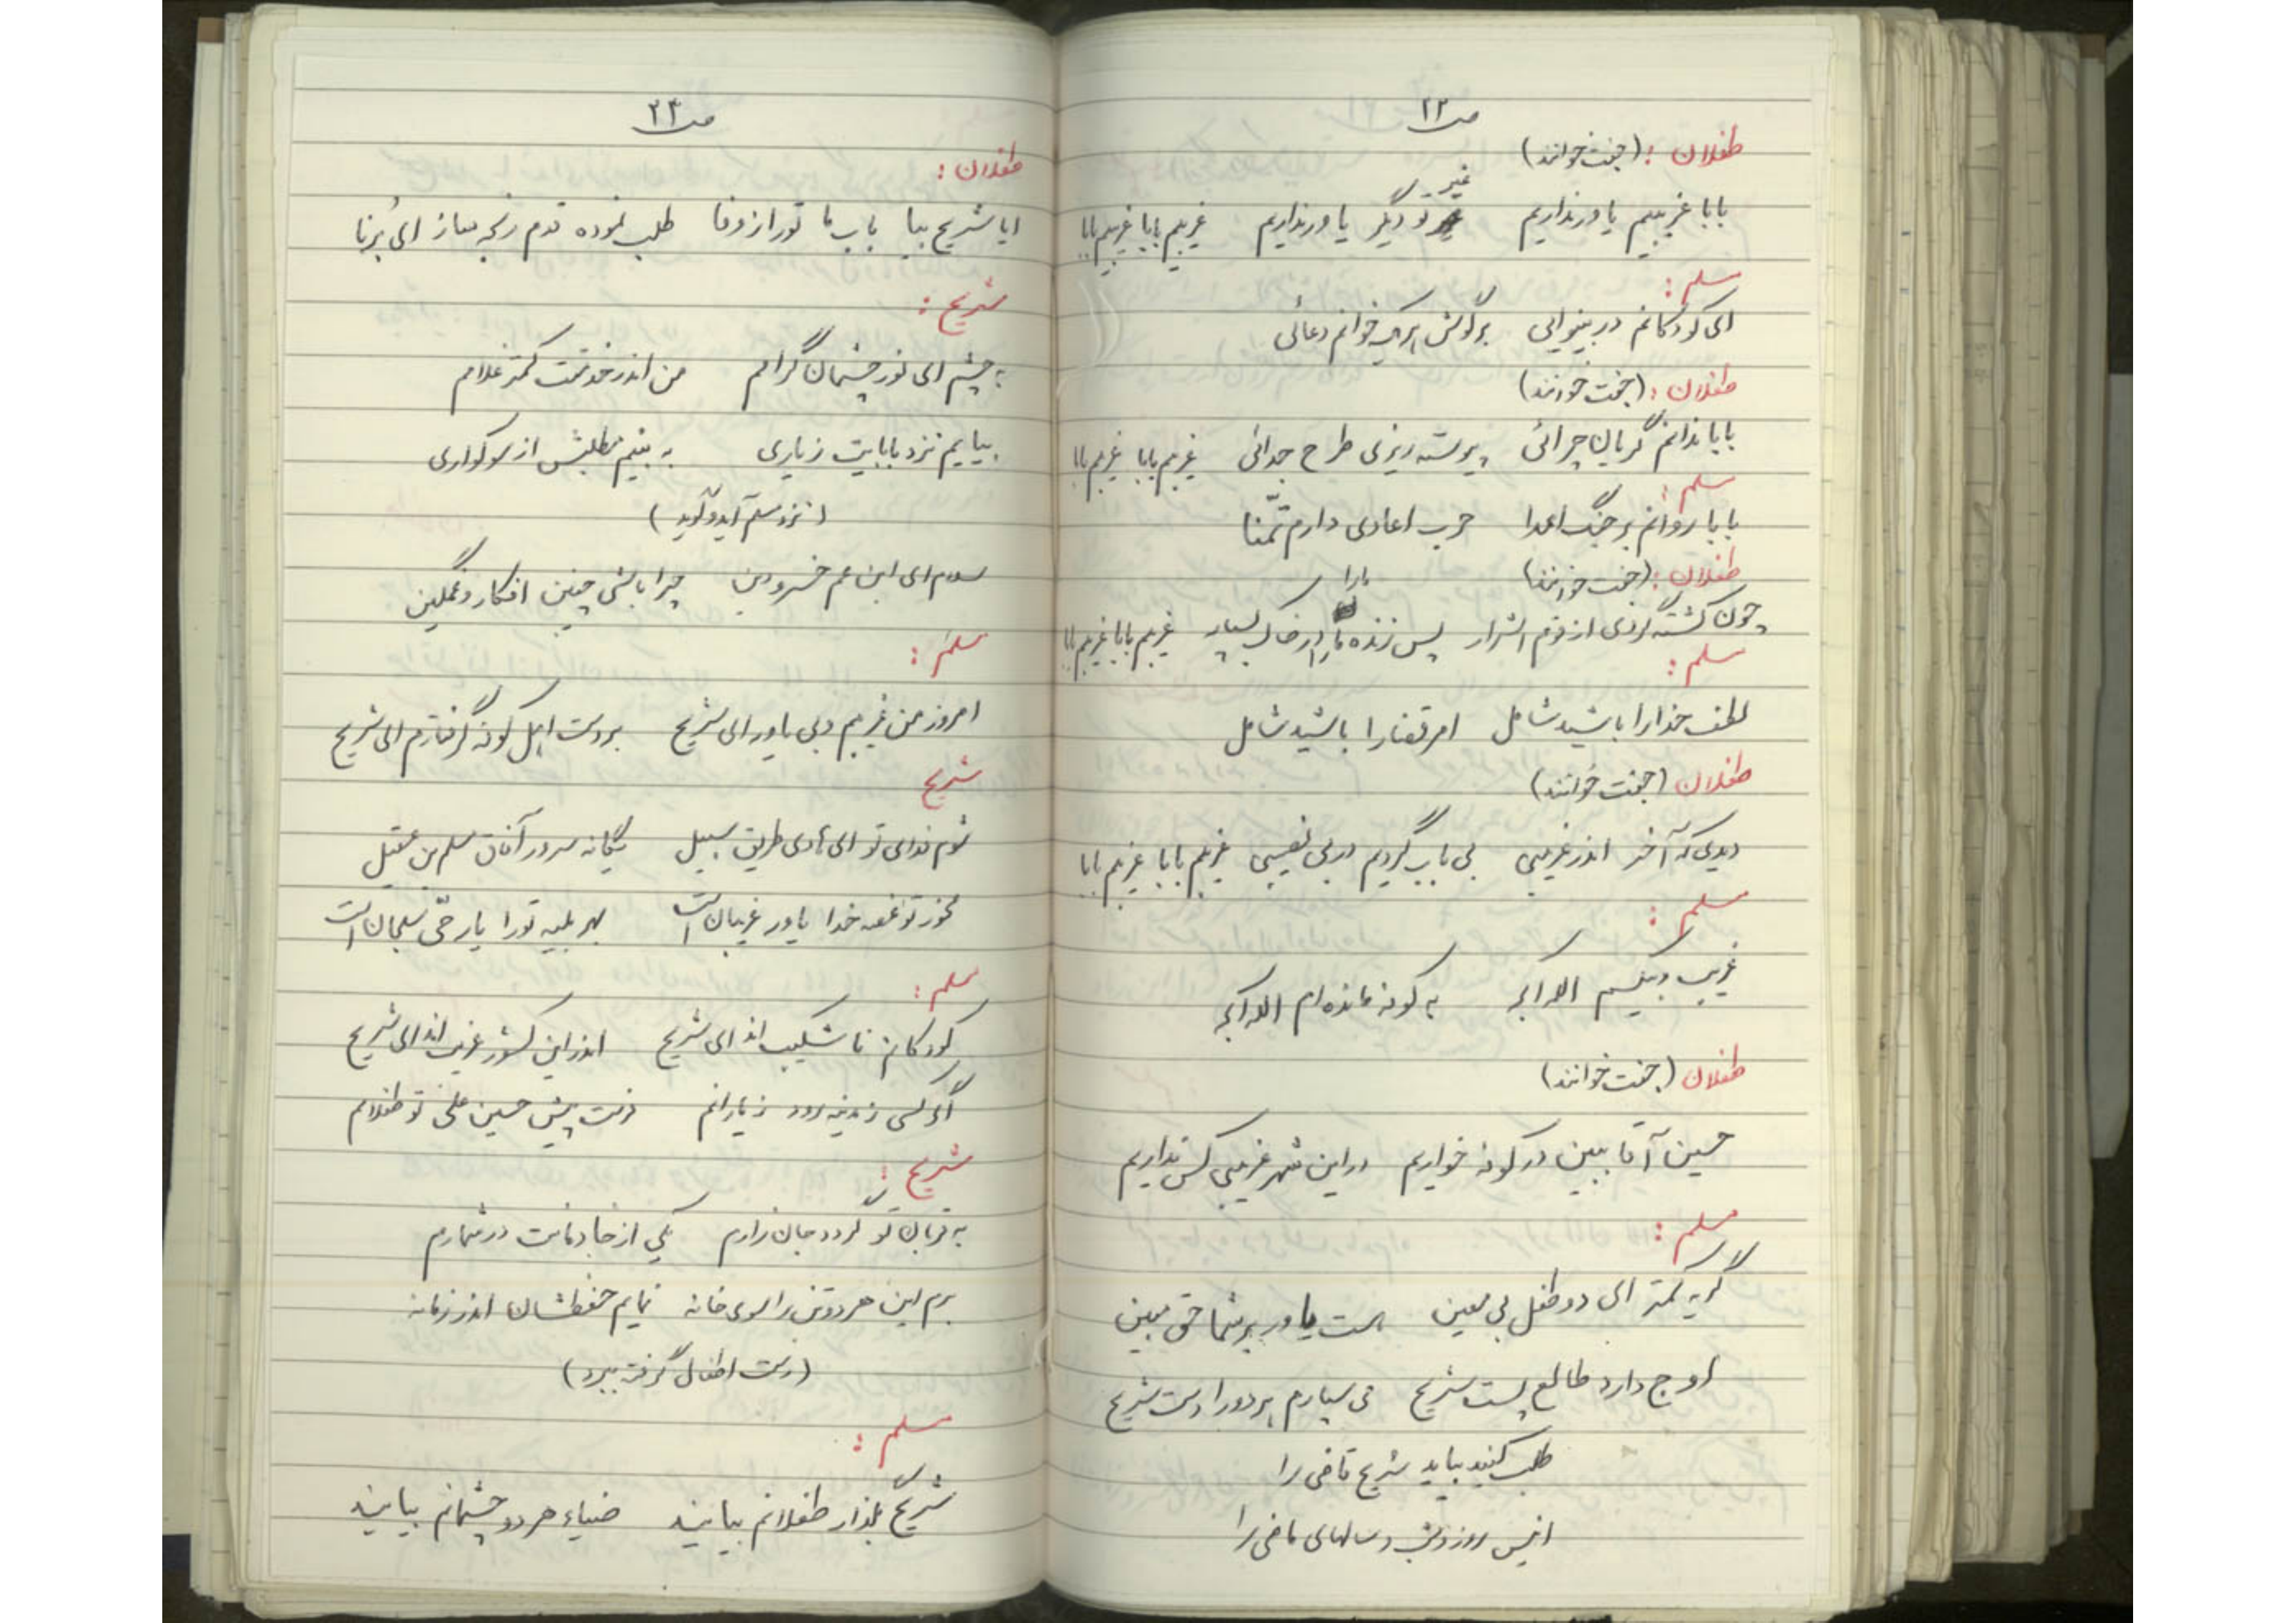 ص ۲۳
طفلان : (جفت خوانند)
بابا غریبیم یاور نداریم غیر تو دیگر یاور نداریم غریبم بابا غریبم بابا
مسلم :
ای کودکانم در بینوایی بر گوش هر یک خوانم دعائی
طفلان : (جفت خوانند)
بابا ندانم گریان چرائی پیوسته ریزی طرح جدائی غریبم بابا غریبم بابا
مسلم :
بابا روانم بر جنگ اعدا حرب اعادی دارم تمّنا
طفلان : (جفت خوانند)
چون کشته گردی از قوم اشرار پس زنده ما را در خاک بسپار غریبم بابا غریبم بابا
مسلم :
لطف خدا را باشید شامل امر قضا را باشید شامل
طفلان (جفت خوانند)
دیدی که آخر اندر غریبی بی باب گردیم در بی نصیبی غریبم بابا غریبم بابا
مسلم :
غریب و بیکسم الله اکبر به کوفه مانده ام الله اکبر
طفلان (جفت خوانند)
حسین آقا ببین در کوفه خواریم در این شهر غریبی کس نداریم
مسلم :
گریه کمتر ای دو طفل بی معین هست یاور بر شما حق مبین
اوج دارد طالع پست شریح می سپارم هر دو را دست شریح
طلب کنید بیاید شریح قاضی را
انیس روز و شب و سالهای ماضی را
ص ۲۴
طفلان :
ایا شریح بیا باب ما تو را از وفا طلب نموده قدم رنجه ساز ای بُرنا
شریح :
به چشم ای نور چشمان گرامم من اندر خدمتت کمتر غلامم
بیایم نزد بابایت زیاری به بینم مطلبش از سوگواری
(نزد مسلم آید و گوید)
سلام ای ابن عم خسرو دین چرا باشی چنین افکار و غمگین
مسلم :
امروز من غریبم و بی یاور ای شریح بر دست اهل کوفه گرفتارم ای شریح
شریح
شوم فدای تو ای هادی طریق سبیل یگانه سرور آفاق مسلم بن عقیل
مخور تو غصه خدا یاور غریبان است بهر بلیه تو را یار حّی سبحان است
مسلم :
کودکانم نا شکیب اند ای شریح اندر این کشور غریب اند ای شریح
اگر کسی ز مدینه رود زیارانم فرست پیش حسین علی تو طفلانم
شریح :
به قربان تو گردد جان زارم یکی از خادمانت در شمارم
برم این هر دو تن را سوی خانه نمایم حفظشان اندر زمانه
(دست اطفال گرفته ببرد)
مسلم :
شریح بگذار طفلانم بیایند ضیاء هر دو چشمانم بیایند